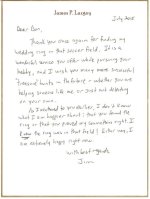 James P. Logan
July 2015
Dear Ben,
Thank you once again for finding my
wedding ring in that soccer field. It is a
wonderful service you offer while pursuing your
hobby, and I wish you many more successful
treasure hunts in the future - whether you are
helping someone like me or just out detecting
on your own.
As I mentioned to you earlier, I don't know
what I am happier about: that you found the
ring or that you proved my conviction right. I
knew the ring was in that field! Either way, I
am extremely happy right now.
With best regards,
Jim